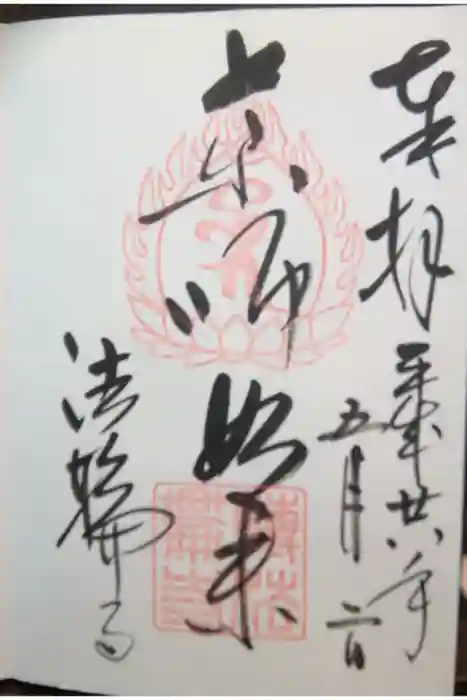 奉拝
平成廿六年
五月二日
薬師如来
法輪寺